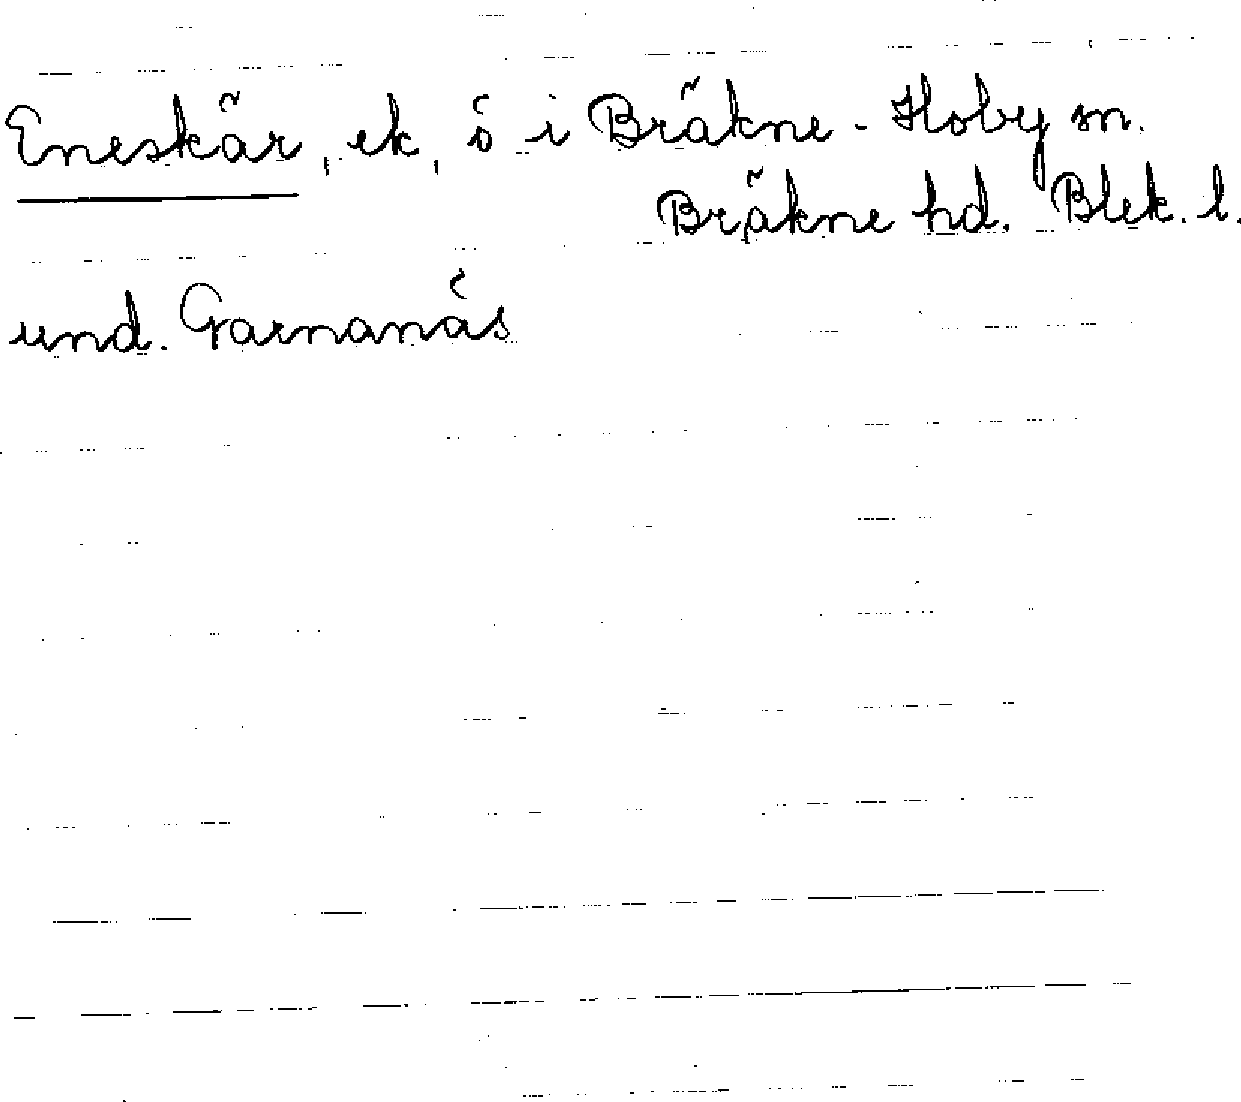 Eneskär, ek, ö i Bräkne-Hoby sn.
Bräkne hd. Blek. l.
und. Garnanäs